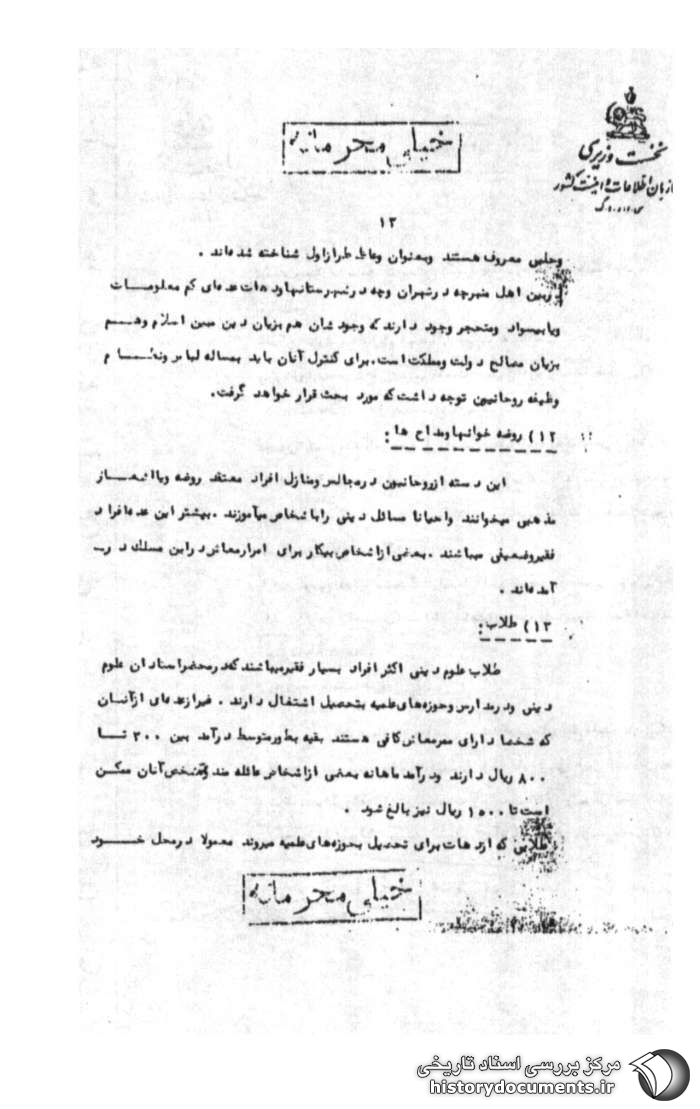 خیلی محرمانه
نخست وزیری
سازمان اطلاعات و امنیت کشور
س.ا.و.ا.ک
۱۲
و جلبی معروف هستند و بعنوان وعاظ طراز اول شناخته شده‌اند .
از بین اهل منبر چه در تهران و چه در شهرستانها و دهات عده‌ای کم معلومات
و یا بیسواد و متحجر وجود دارند که وجودشان هم بزیان دین مبین اسلام و هم
بزیان مصالح دولت و مملکت است . برای کنترل آنان باید بمساله لباس و نظام
وظیفه روحانیون توجه داشت که مورد بحث قرار خواهد گرفت .
۱۲) روضه خوانها و مداح ها :
این دسته از روحانیون در مجالس و منازل افراد معتقد روضه و یا اشعار
مذهبی میخوانند و احیانا مسائل دینی را باشخاص میآموزند . بیشتر این عده افراد
فقیر و ضعیفی میباشند . بعضی از اشخاص بیکار برای امرار معاش در این مسلک در
آمده‌اند .
۱۳) طلاب :
طلاب علوم دینی اکثر افراد بسیار فقیر میباشند که در محضر استادان علوم
دینی و در مدارس و حوزه‌های علمیه بتحصیل اشتغال دارند . غیر از عده‌ای از آنان
که شخصا دارای ممر معاش کافی هستند بقیه بطور متوسط درآمد بین ۳۰۰ تا
۸۰۰ ریال دارند و درآمد ماهانه بعضی از اشخاص عائله مند و مشخص آنان ممکن
است تا ۱۵۰۰ ریال نیز بالغ شود .
طلابی که از دهات برای تحصیل بحوزه‌های علمیه میروند معمولا در محل خود
خیلی محرمانه
مرکز بررسی اسناد تاریخی
historydocuments.ir